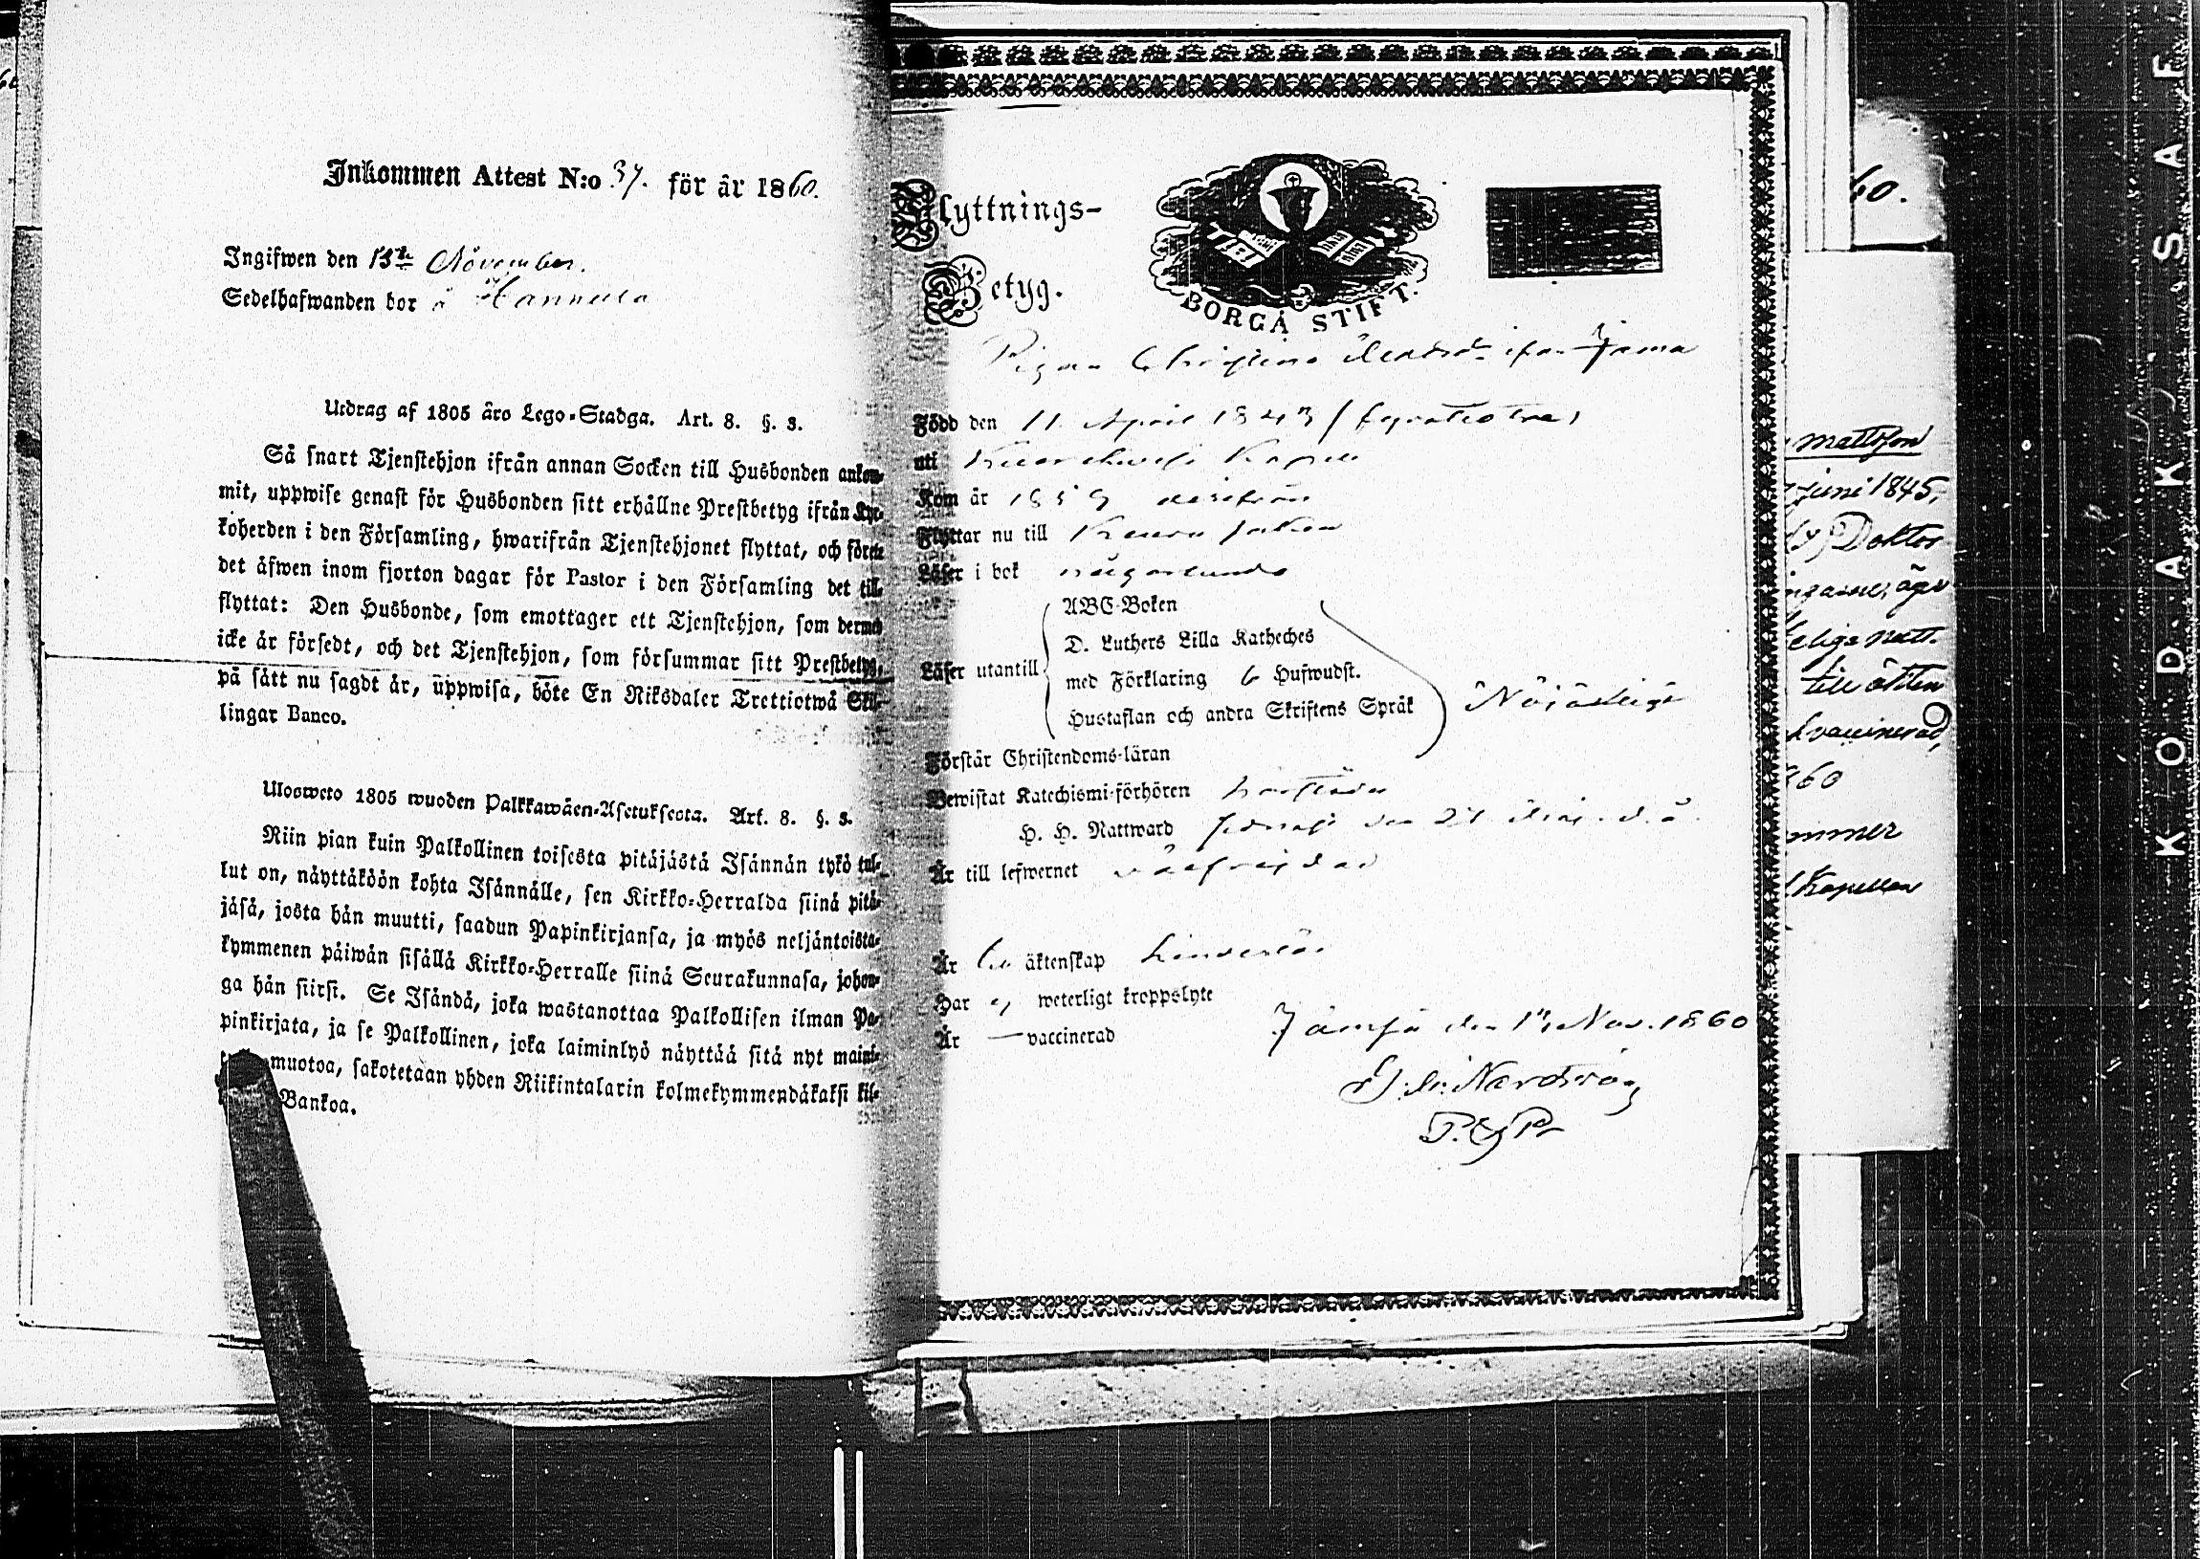 Inkommen Attest N:o 37. för år 1860.
Ingifwen den 15de November.
Sedelhafwanden bor å Hannula
Utdrag af 1805 års Lego-Stadga. Art. 8. §. 3.
Så snart Tjenstehjon ifrån annan Socken till Husbonden ankom-
mit, uppwise genast för Husbonden sitt erhållne Prestbetyg ifrån Kyr-
koherden i den Församling, hwarifrån Tjenstehjonet flyttat, och förete
det åfwen inom fjorton dagar för Pastor i den Församling det till-
flyttat: Den Husbonde, som emottager ett Tjenstehjon, som dermed
icke år försedt, och det Tjenstehjon, som försummar sitt Prestbetyg,
på sått nu sagdt år, uppwisa, böte En Riksdaler Trettiotwå Skil-
lingar Banco.
Ulosweto 1805 wuoden Palkkawäen-Asetuksesta. Art. 8. §. 3.
Niin pian kuin Palkollinen toisesta pitäjästä Isännän tykö tul-
lut on, näyttäköön kohta Isännälle, sen Kirkko-Herralda siinä pitä-
jäsä, josta hän muutti, saadun Papinkirjansa, ja myös neljäntoista-
kymmenen päiwän sisällä Kirkko-Herralle siinä Seurakunnasa, johon-
ga hän siirsi. Se Isändä, joka wastanottaa Palkollisen ilman Pa-
pinkirjata, ja se Palkollinen, joka laiminlyö näyttää sitä nyt maini-
muotoa, sakotetaan yhden Riikintalarin kolmekymmendäkaksi kil-
Bankoa.
Flyttnings-
Betyg.
BORGÅ STIFT.
Pigan Christina ifrån
Född den 11 April 1843 (fyratiotre)
uti Kapell
Kom år 1859 derifrån
Flyttar nu till Keuru socken
Läser i bok någorlunda
ABC-Boken
D. Luthers Lilla Katheches
med Förklaring 6 Hufwudst.
Läser utantill
Hustaflan och andra Skriftens Språk
Nöjaktligt
Förstår Christendoms-läran
Bewistat Katechismi-förhören
H. H. Nattward den 27 Maj d. å.
Är till lefwernet wälfrejdad
Är till äktenskap hinderlös
Har ej weterligt kroppslyte
Är — vaccinerad
Jämsä den 1 Nov. 1860
Nordström
60.
Mattsson
juni 1845,
Doktor
till
vaccinerad,
1860
Kapellan
KODAK SAF